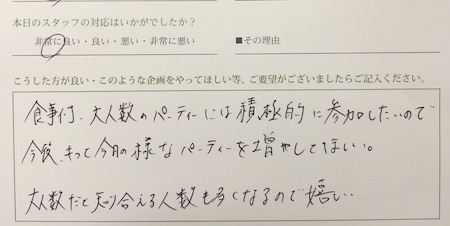 本日のスタッフの対応はいかがでしたか?
非常に良い・良い・悪い・非常に悪い ■その理由
こうした方が良い・このような企画をやってほしい等、ご要望がございましたらご記入ください。
食事付、大人数のパーティーには積極的に参加したいので
今後、もって今日の様なパーティーを増やしてほしい。
大人数だと知り合える人数も多くなるので嬉しい…